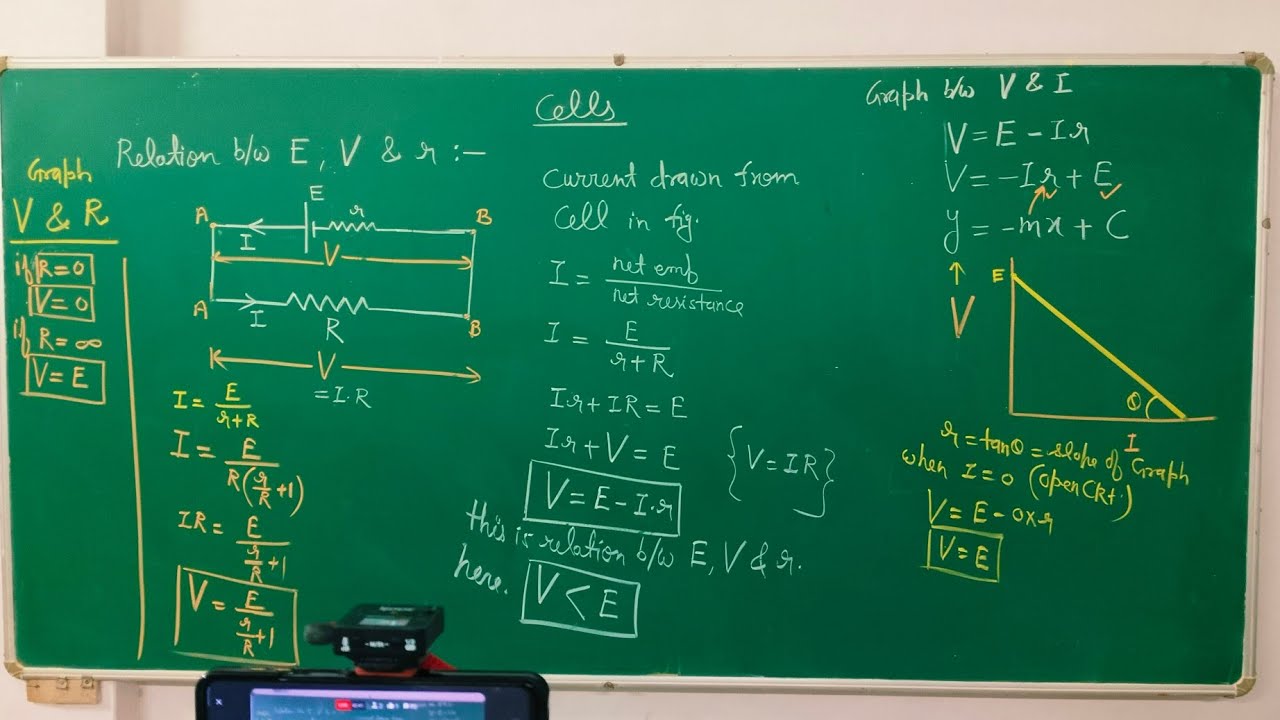 Cells
Graph
V & R
if R=0
V=0
if R=∞
V=E
Relation b/w E, V & r :–
E
r
A
B
I
V
A
B
I
R
V
=I.R
I = E/(r+R)
I = E/(R(r/R+1))
IR = E/(r/R+1)
V = E/(r/R+1)
Current drawn from
Cell in fig.
I = net emf/net resistance
I = E/(r+R)
Ir+IR=E
Ir+V=E {V=IR}
V=E-I.r
this is relation b/w E, V & r.
here. V<E
Graph b/w V & I
V=E-Ir
V=-Ir+E
y=-mx+C
V
E
θ
I
r=tanθ=slope of Graph
when I=0 (open Ckt.)
V=E-0xr
V=E